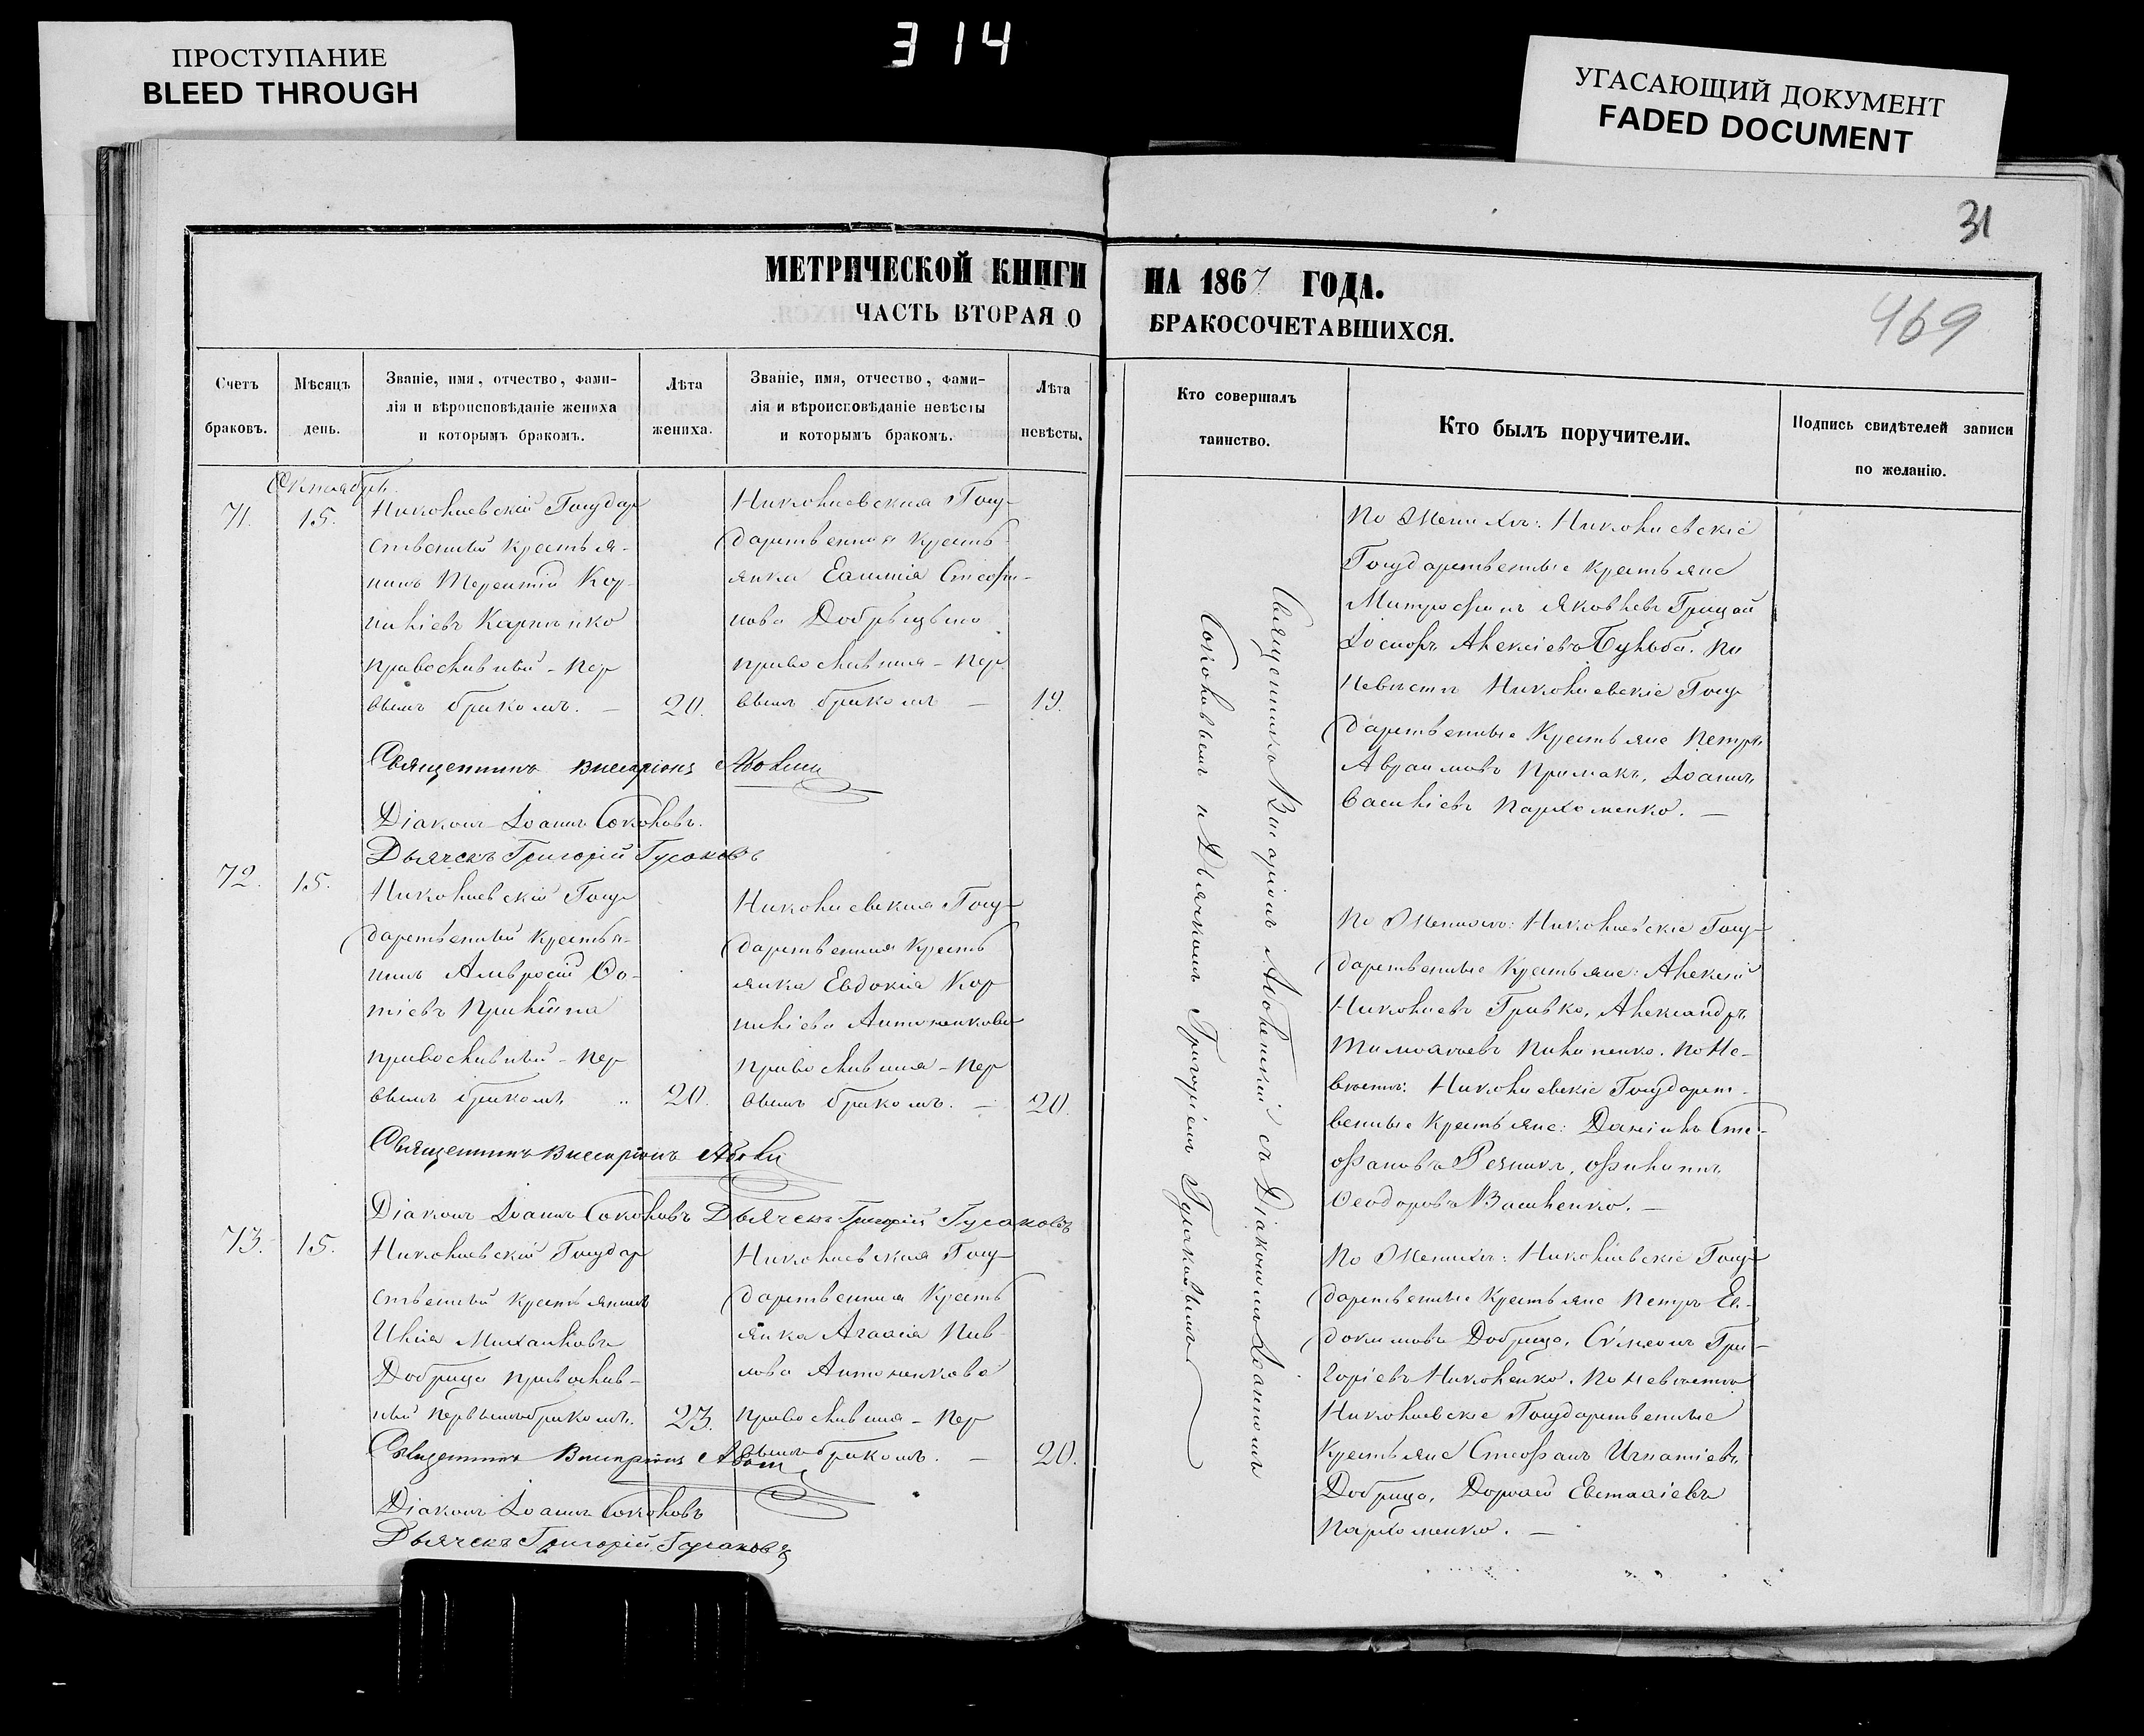 ПРОСТУПАНИЕ
BLEED THROUGH
314
УГАСАЮЩИЙ ДОКУМЕНТ
FADED DOCUMENT
31
469
МЕТРИЧЕСКОЙ КНИГИ НА 1867 ГОДА.
ЧАСТЬ ВТОРАЯ О БРАКОСОЧЕТАВШИХСЯ.
Счетъ
браковъ.
Мѣсяцъ
день.
Званіе, имя, отчество, фами-
лія и вѣроисповѣданіе жениха
и которымъ бракомъ.
Лѣта
жениха.
Званіе, имя, отчество, фами-
лія и вѣроисповѣданіе невѣсты
и которымъ бракомъ.
Лѣта
невѣсты.
Кто совершалъ
таинство.
Кто былъ поручители.
Подпись свидѣтелей записи
по желанію.
Октябрь
71.
15.
Николаевскій Государ
ственный крестья-
нинъ Терентій Кор-
нилiевъ Карпенко
православный - пер
вымъ бракомъ. —
20.
Николаевская Госу-
дарственная Кресть-
янка Стефа-
нова
православная - пер
вымъ бракомъ —
19.
По Женихѣ: Николаевскіе
Государственные крестьяне
Митрофанъ Яковлевъ Грицай
Іосифъ Алексіевъ Бульба. По
Невѣстѣ Николаевскіе Госу
дарственные Крестьяне Петръ
Авраамовъ Примакъ, Іоаннъ
Василіевъ Пархоменко. —
Священникъ Висаріонъ
Діаконъ Іоаннъ Соколовъ.
Дьячекъ Григорій Гусаковъ
72.
15.
Николаевскій Госу
дарственный Крестья-
нинъ Амвросій Фо-
тіевъ
православный - пер
вымъ бракомъ „
20.
Николаевская Госу-
дарственная Кресть
янка Евдокія Кор
нилiева Антоненкова
православная - пер
вымъ бракомъ. —
20.
По Женихѣ: Николаевскіе Госу-
дарственные Крестьяне: Алексій
Николаевъ Гривко, Александръ
Тимофѣевъ Пилипенко. По Не-
вѣстѣ: Николаевскіе Государст-
венные Крестьяне: Даніилъ Сте-
фановъ Резникъ, Филиппъ
Феодоровъ Василенко. —
Священникъ Висаріонъ
Діаконъ Іоаннъ Соколовъ Дьячекъ Григорій Гусаковъ
73.
15.
Николаевскій Государ
ственный крестьянинъ
Илія Михаиловъ
Добрица православ-
ный первымъ бракомъ.
23.
Николаевская Госу-
дарственная Кресть
янка Агафія Пав-
лова Антоненкова
православная - пер
вымъ бракомъ. —
20.
По Женихѣ: Николаевскіе Госу
дарственные Крестьяне Петръ Ев-
докимовъ Добрица, Сѵмеонъ Гри-
горіевъ Николенко. По Невѣстѣ
Николаевскіе Государственные
Крестьяне Стефанъ Игнатіевъ
Добрица, Дорофей Евстафіевъ
Пархоменко. —
Священникъ Висаріонъ
Діаконъ Іоаннъ Соколовъ
Дьячекъ Григорій Гусаковъ
Священникъ Висаріонъ съ Діакономъ Іоанномъ
Соколовымъ и Дьячкомъ Григоріемъ Гусаковымъ